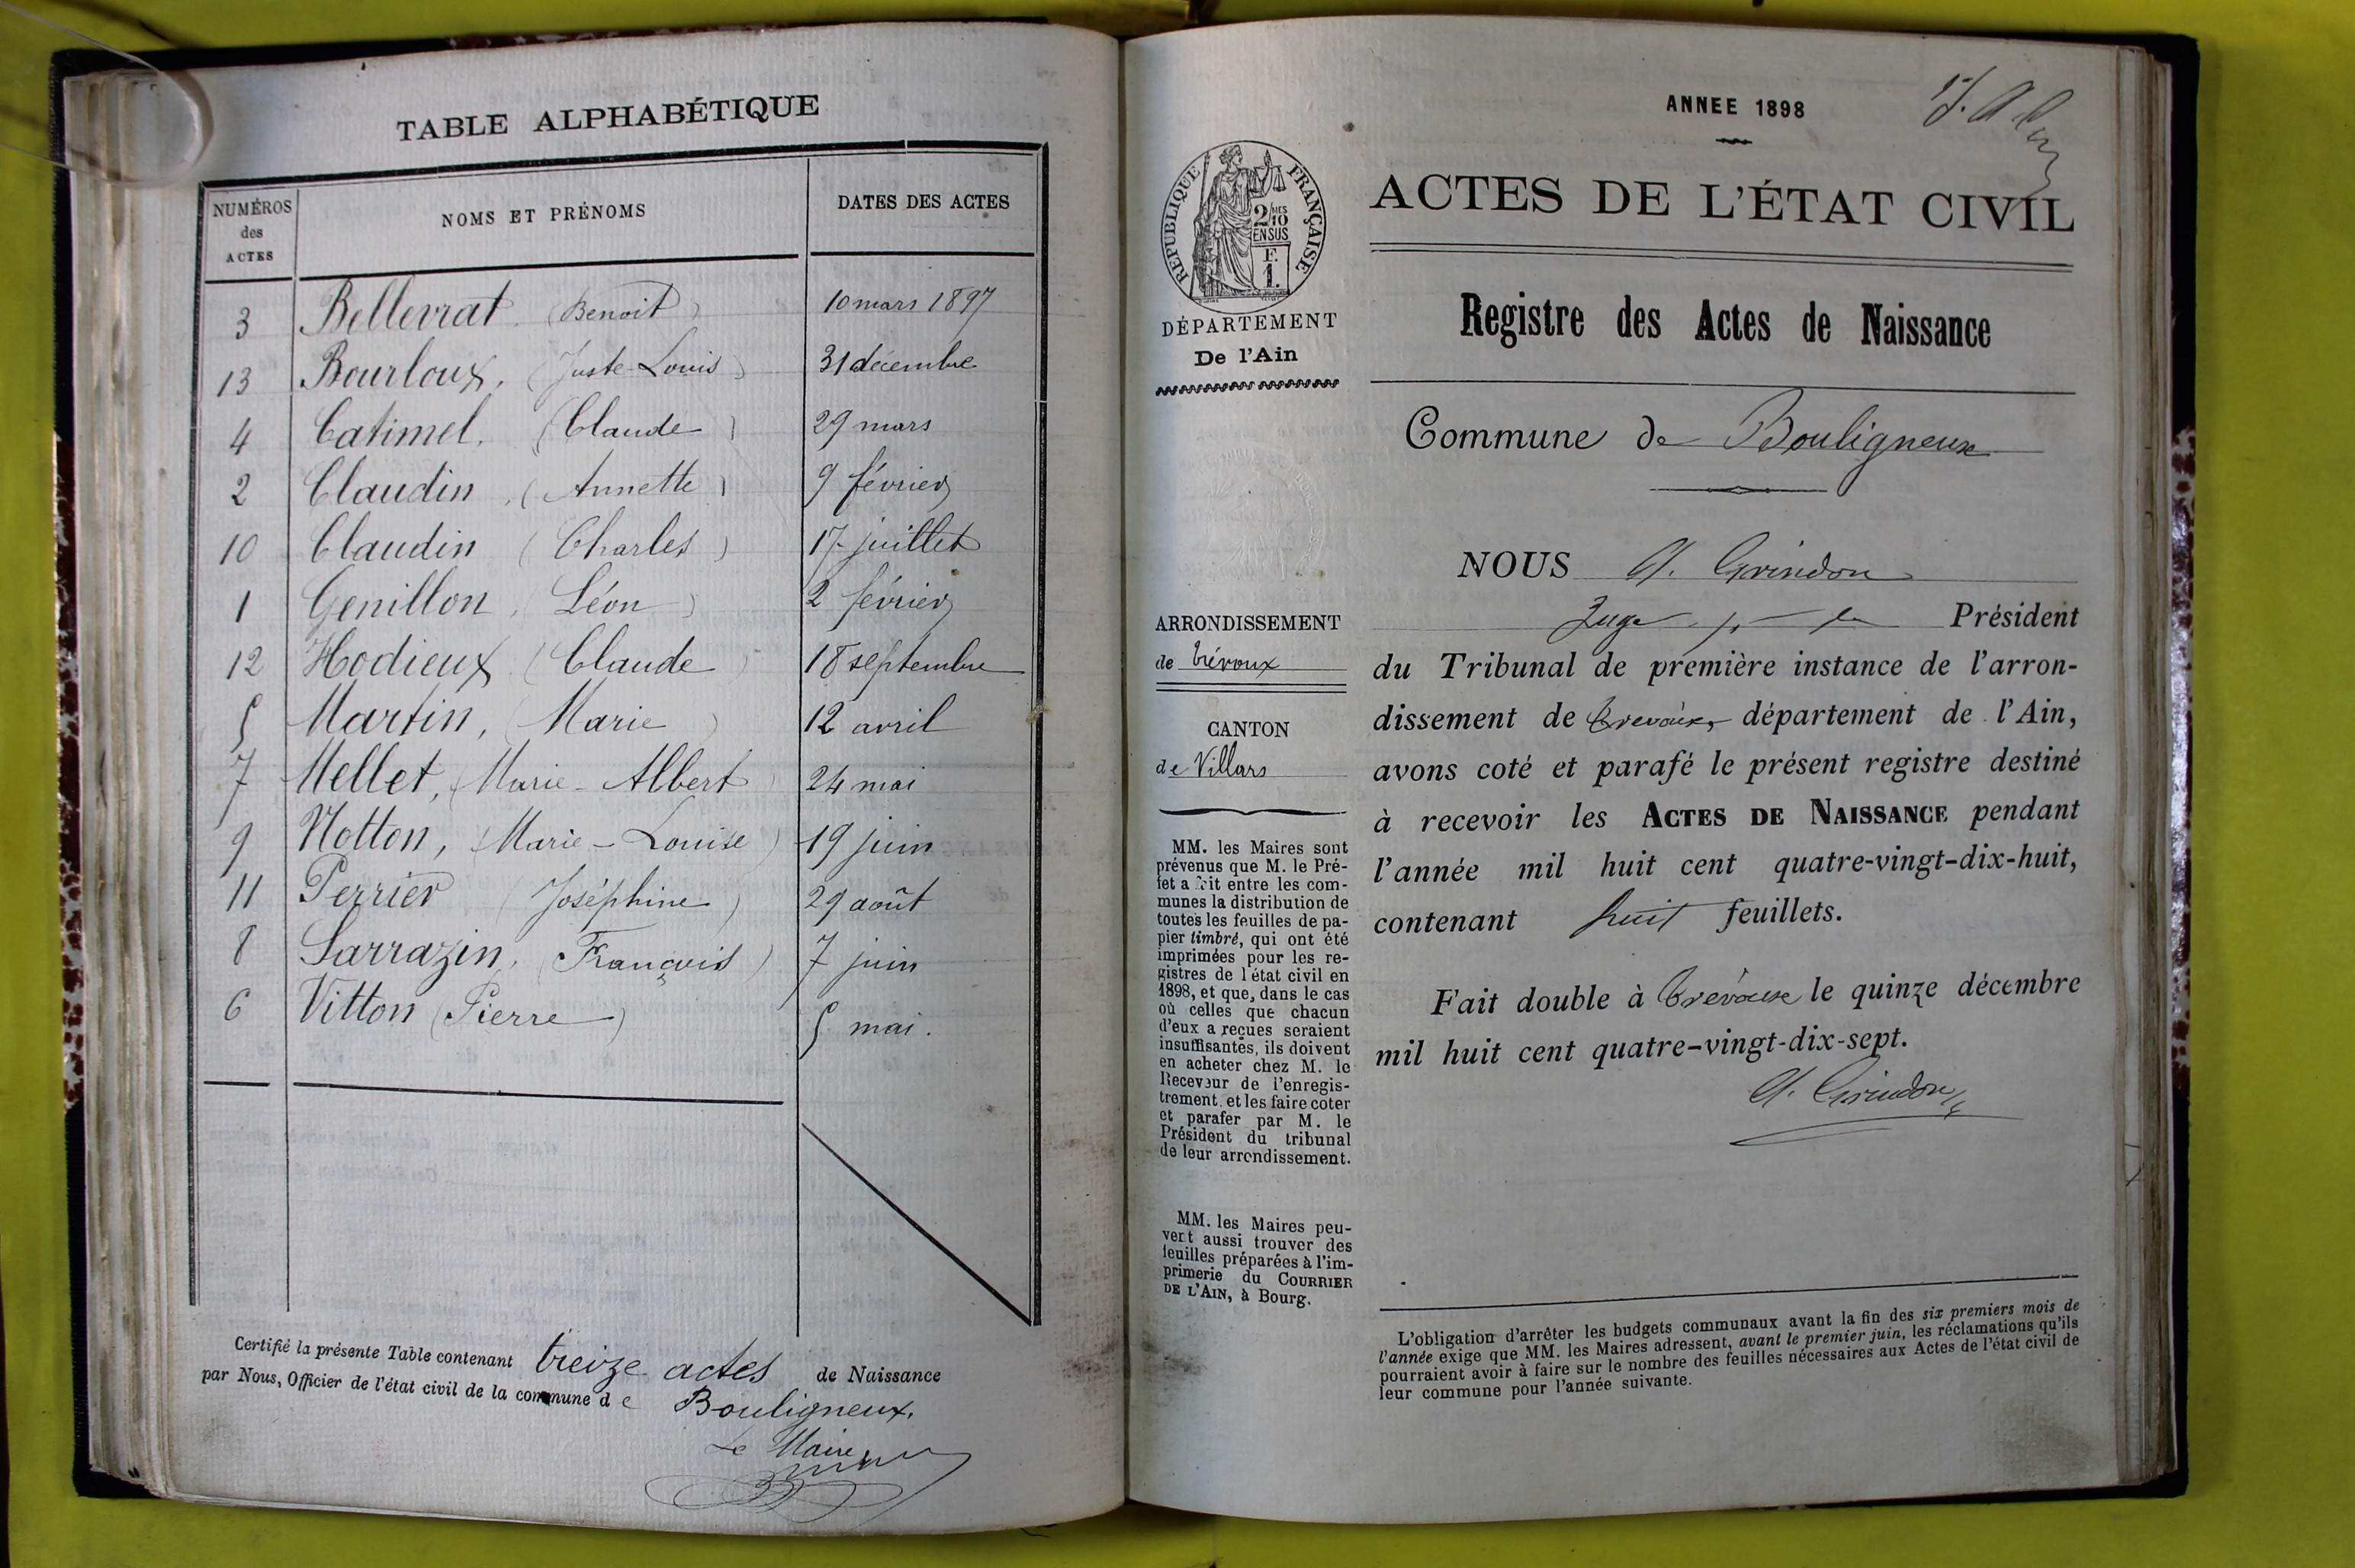 TABLE ALPHABÉTIQUE
NUMÉROS des ACTES NOMS ET PRÉNOMS DATES DES ACTES
3 Bellevrat (Benoit) 10 mars 1897
13 Bourloux, (Juste-Louis) 31 décembre
4 Catimel, (Claude) 29 mars
2 Claudin, (Annette) 9 février
10 Claudin (Charles) 17 juillet
1 Genillon, (Léon) 2 février
12 Hodieux (Claude) 18 septembre
5 Martin, (Marie) 12 avril
7 Mellet, (Marie-Albert) 24 mai
9 Notton, (Marie-Louise) 19 juin
11 Perrier (Joséphine) 29 août
8 Sarrazin, (François) 7 juin
6 Vitton (Pierre) 5 mai.
Certifié la présente Table contenant treize actes de Naissance
par Nous, Officier de l'état civil de la commune de Bouligneux.
Le Maire
ANNEE 1898
ACTES DE L'ÉTAT CIVIL
RÉPUBLIQUE FRANÇAISE
2/10MES
EN SUS
F.
1.
DÉPARTEMENT
De l'Ain
Registre des Actes de Naissance
Commune de Bouligneux
ARRONDISSEMENT
de Trévoux
CANTON
de Villars
MM. les Maires sont
prévenus que M. le Pré-
fet a fait entre les com-
munes la distribution de
toutes les feuilles de pa-
pier timbré, qui ont été
imprimées pour les re-
gistres de l'état civil en
1898, et que, dans le cas
où celles que chacun
d'eux a reçues seraient
insuffisantes, ils doivent
en acheter chez M. le
Receveur de l'enregis-
trement, et les faire coter
et parafer par M. le
Président du tribunal
de leur arrondissement.
MM. les Maires peu-
vent aussi trouver des
feuilles préparées à l'im-
primerie du COURRIER
DE L'AIN, à Bourg.
NOUS A. Grindon
Juge p. le Président
du Tribunal de première instance de l'arron-
dissement de Trévoux, département de l'Ain,
avons coté et parafé le présent registre destiné
à recevoir les ACTES DE NAISSANCE pendant
l'année mil huit cent quatre-vingt-dix-huit,
contenant huit feuillets.
Fait double à Trévoux le quinze décembre
mil huit cent quatre-vingt-dix-sept.
A. Grindon
L'obligation d'arrêter les budgets communaux avant la fin des six premiers mois de
l'année exige que MM. les Maires adressent, avant le premier juin, les réclamations qu'ils
pourraient avoir à faire sur le nombre des feuilles nécessaires aux Actes de l'état civil de
leur commune pour l'année suivante.